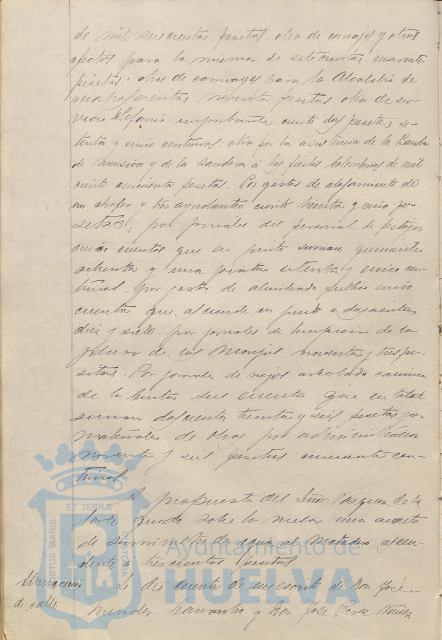 de mil seiscientas pesetas otra de encajes y otros
efectos para la misma de setecientas cuarenta
pesetas: otras de carruages para la Alcaldía de
cuatrocientas noventa pesetas otra de ser-
vicio telefónico importante ciento dos pesetas se-
tenta y cinco centimos, otra por la asistencia de la Banda
de y de la bandera á las fiestas de mil
ciento cincuenta pesetas. Por gastos de alojamiento de
un chofer y tres ayudantes ciento treinta y cinco pe-
setas; por jornales del personal de festejos
cinco cuentas que en junto suman quinientas
ochenta y una pesetas setenta y cinco cen-
timos. por gastos de alumbrado público cinco
cuentas que asciende en junto a doscientas
diez y siete por jornales de limpieza de la
plaza de las Monjas noventa y tres pe-
setas. Por jornales de riegos arbolado camino
de la Cinta seis cuentas que en total
suman doscientas treinta y seis pesetas por
materiales de obras por administración
noventa y seis pesetas cincuenta cen-
timos.
A propuesta del Señor Vazquez de la
Corte quedó sobre la mesa una cuenta
de suministro de agua al Matadero ascen-
dente a trescientas pesetas.
Se dió cuenta de un escrito de Don José
Camacho y Don José
de calle
Ayuntamiento de
HUELVA